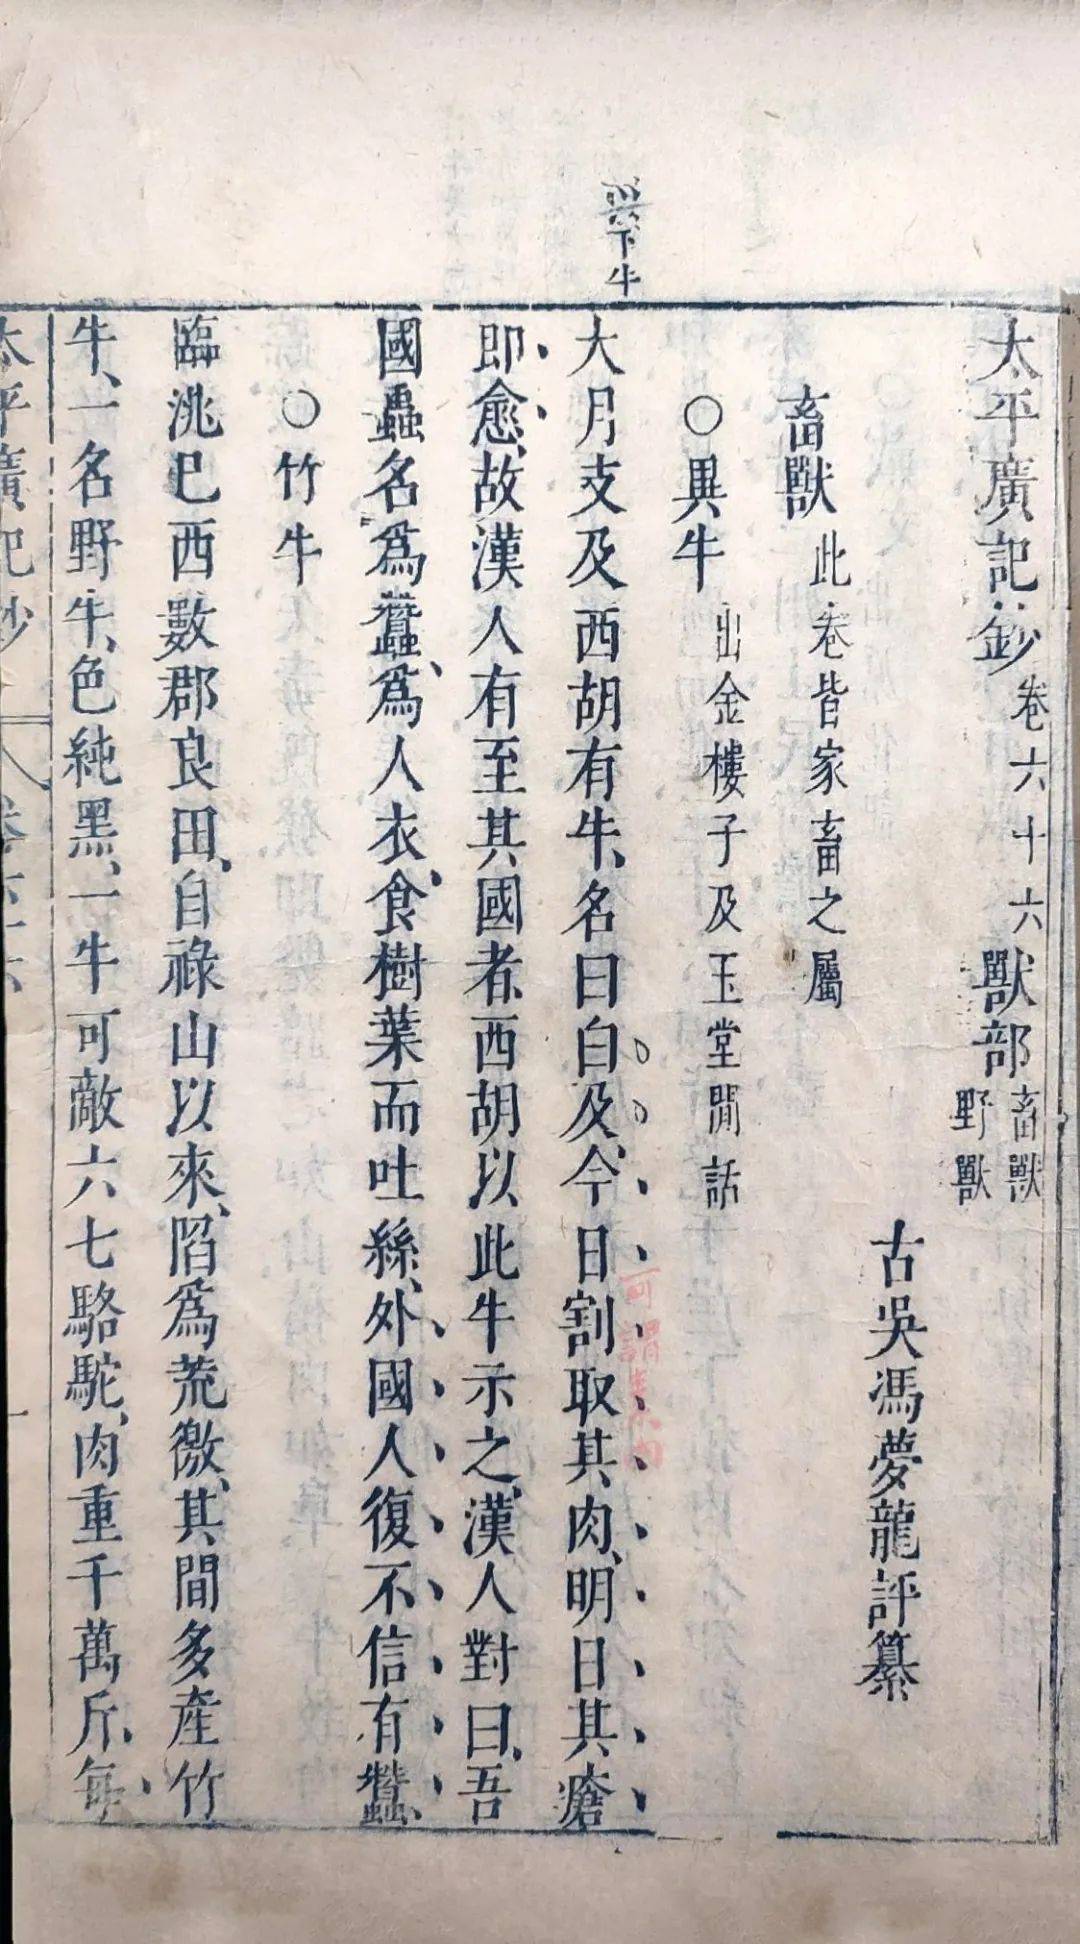 太平廣記鈔卷六十六獸部畜獸野獸
古吳馮夢龍評纂
畜獸此卷皆家畜之屬
○異牛出金樓子及玉堂閒話
下牛
大月支及西胡有牛、名曰白及、今日割取其肉、明日其瘡
可謂
即愈、故漢人有至其國者、西胡以此牛示之、漢人對曰、吾
國蟲名為蠶、為人衣、食樹葉而吐絲、外國人復不信有蠶、
○竹牛
臨洮巴西數郡良田、自祿山以來、陷為荒徼、其間多產竹
牛、一名野牛、色純黑、一牛可敵六七駱駝、肉重千萬斤、每
太平廣記鈔 卷六十六 一